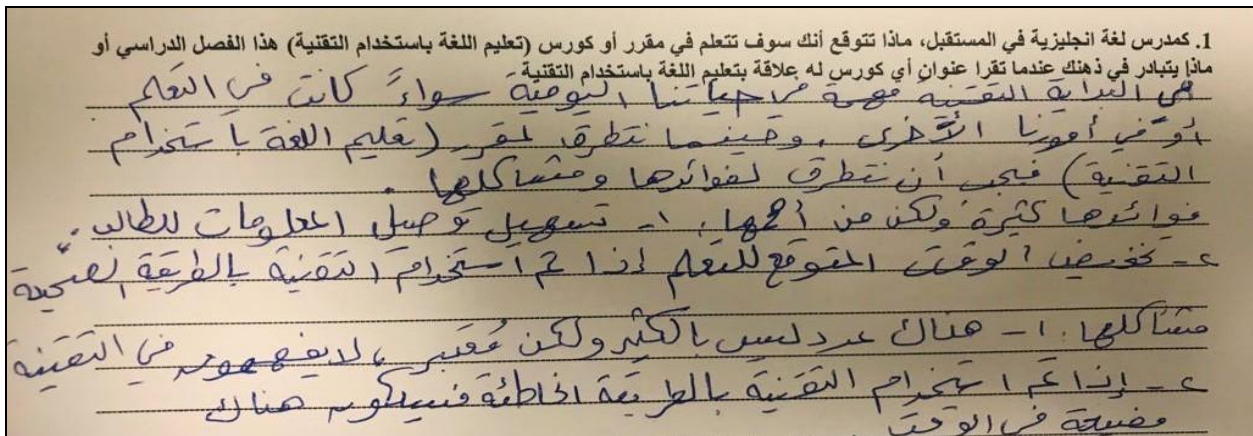 1. كمدرس لغة انجليزية في المستقبل، ماذا تتوقع أنك سوف تتعلم في مقرر أو كورس (تعليم اللغة باستخدام التقنية) هذا الفصل الدراسي أو
ماذا يتبادر في ذهنك عندما تقرا عنوان أي كورس له علاقة بتعليم اللغة باستخدام التقنية
في البداية التقنية مهمة في حياتنا اليومية سواءً كانت في التعلم
أو في أمورنا الأخرى ، وحينما نتطرق لمقرر (تعليم اللغة باستخدام
التقنية) فيجب أن نتطرق لفوائدها ومشاكلها .
فوائدها كثيرة ولكن من أهمها : ١- تسهيل توصيل المعلومات للطالب .
٢- تخفيض الوقت المتوقع للتعلم إذا تم استخدام التقنية بالطريقة الصحيحة
مشاكلها : ١- هناك عدد ليس بالكثير ولكن مُعتبر ، لا يفهمون في التقنية
٢- إذا تم استخدام التقنية بالطريقة الخاطئة فسيكون هناك
مضيعة في الوقت